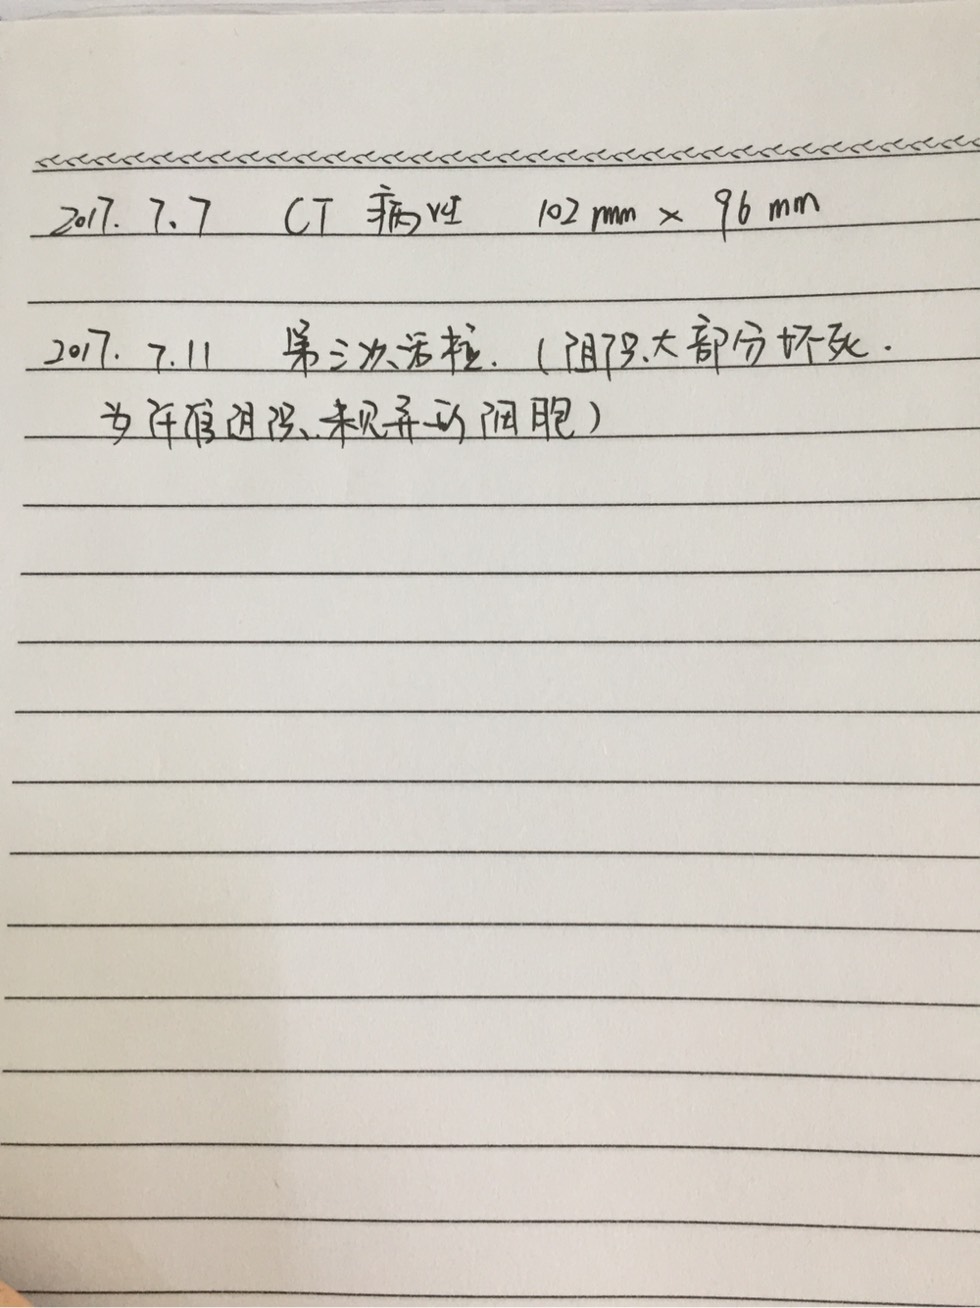 2017. 7.7 CT 病灶 102 mm × 96 mm
2017. 7.11 第三次活检. (阴影大部分坏死.
为纤维阴影、未见异形细胞)